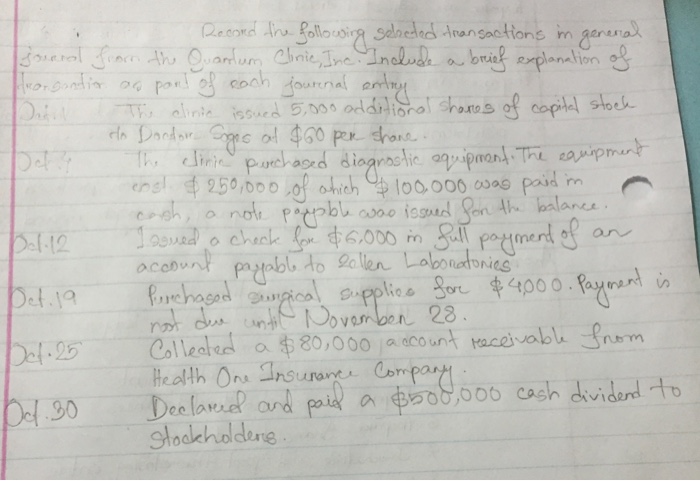 Record the following selected transactions in general
journal from the Quantum Clinic, Inc. Include a brief explanation of
transaction as part of each journal entry
Oct. 1 The clinic issued 5,000 additional shares of capital stock
to Doctor at $60 per share.
Oct. 4 The clinic purchased diagnostic equipment. The equipment
cost $250,000 of which $100,000 was paid in
cash, a note payable was issued for the balance.
Oct. 12 Issued a check for $6,000 in full payment of an
account payable to Zollen Laboratories.
Oct. 19 Purchased surgical supplies for $4,000. Payment is
not due until November 28.
Oct. 25 Collected a $80,000 account receivable from
Health One Insurance Company.
Oct. 30 Declared and paid a $500,000 cash dividend to
stockholders.